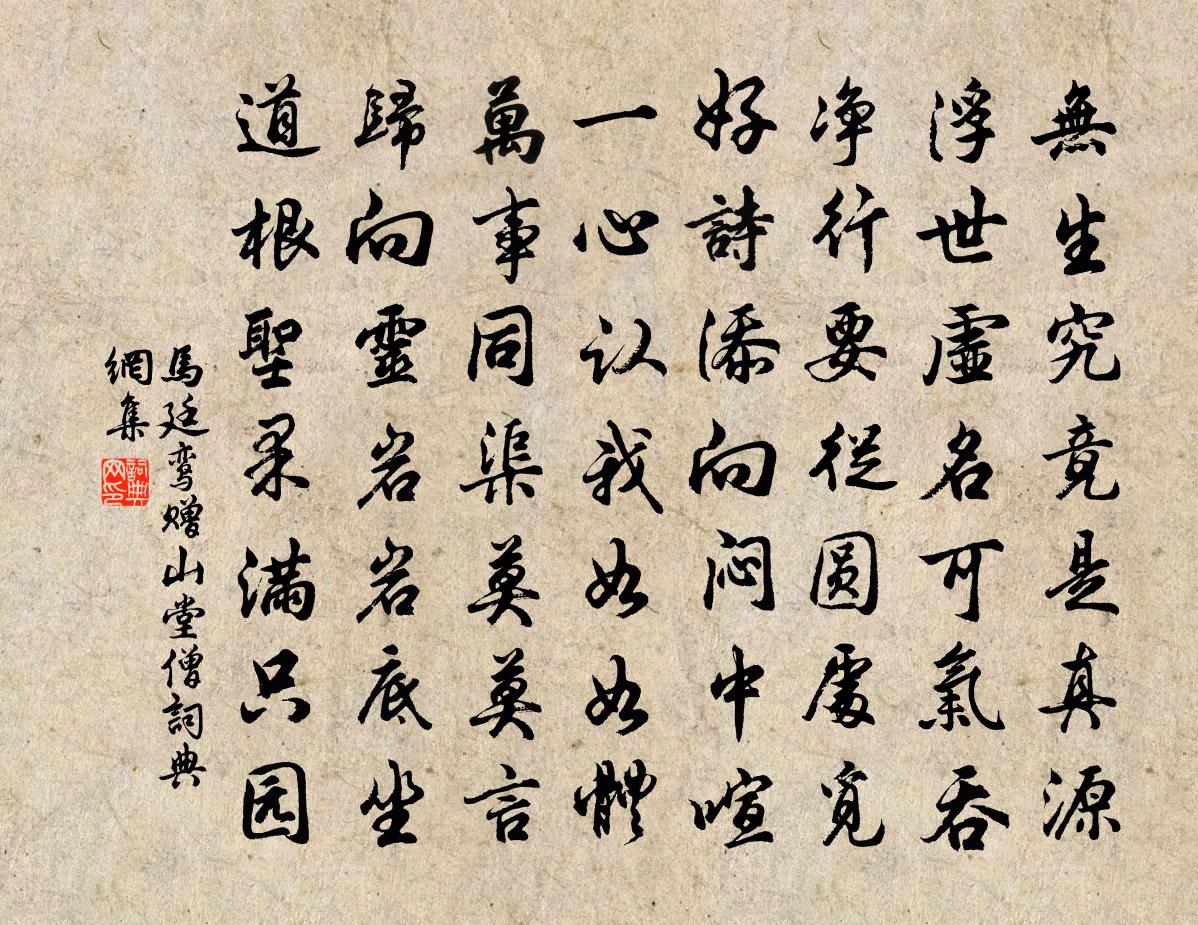 無生究竟是真源
浮世虛名可氣吞
净行要從圓處覓
好詩添向悶中喧
一心认我如如體
萬事同渠莫莫言
歸向靈岩岩底坐
道根聖果滿只园
馬廷鸾赠山堂僧詞典
網集
詞典網印